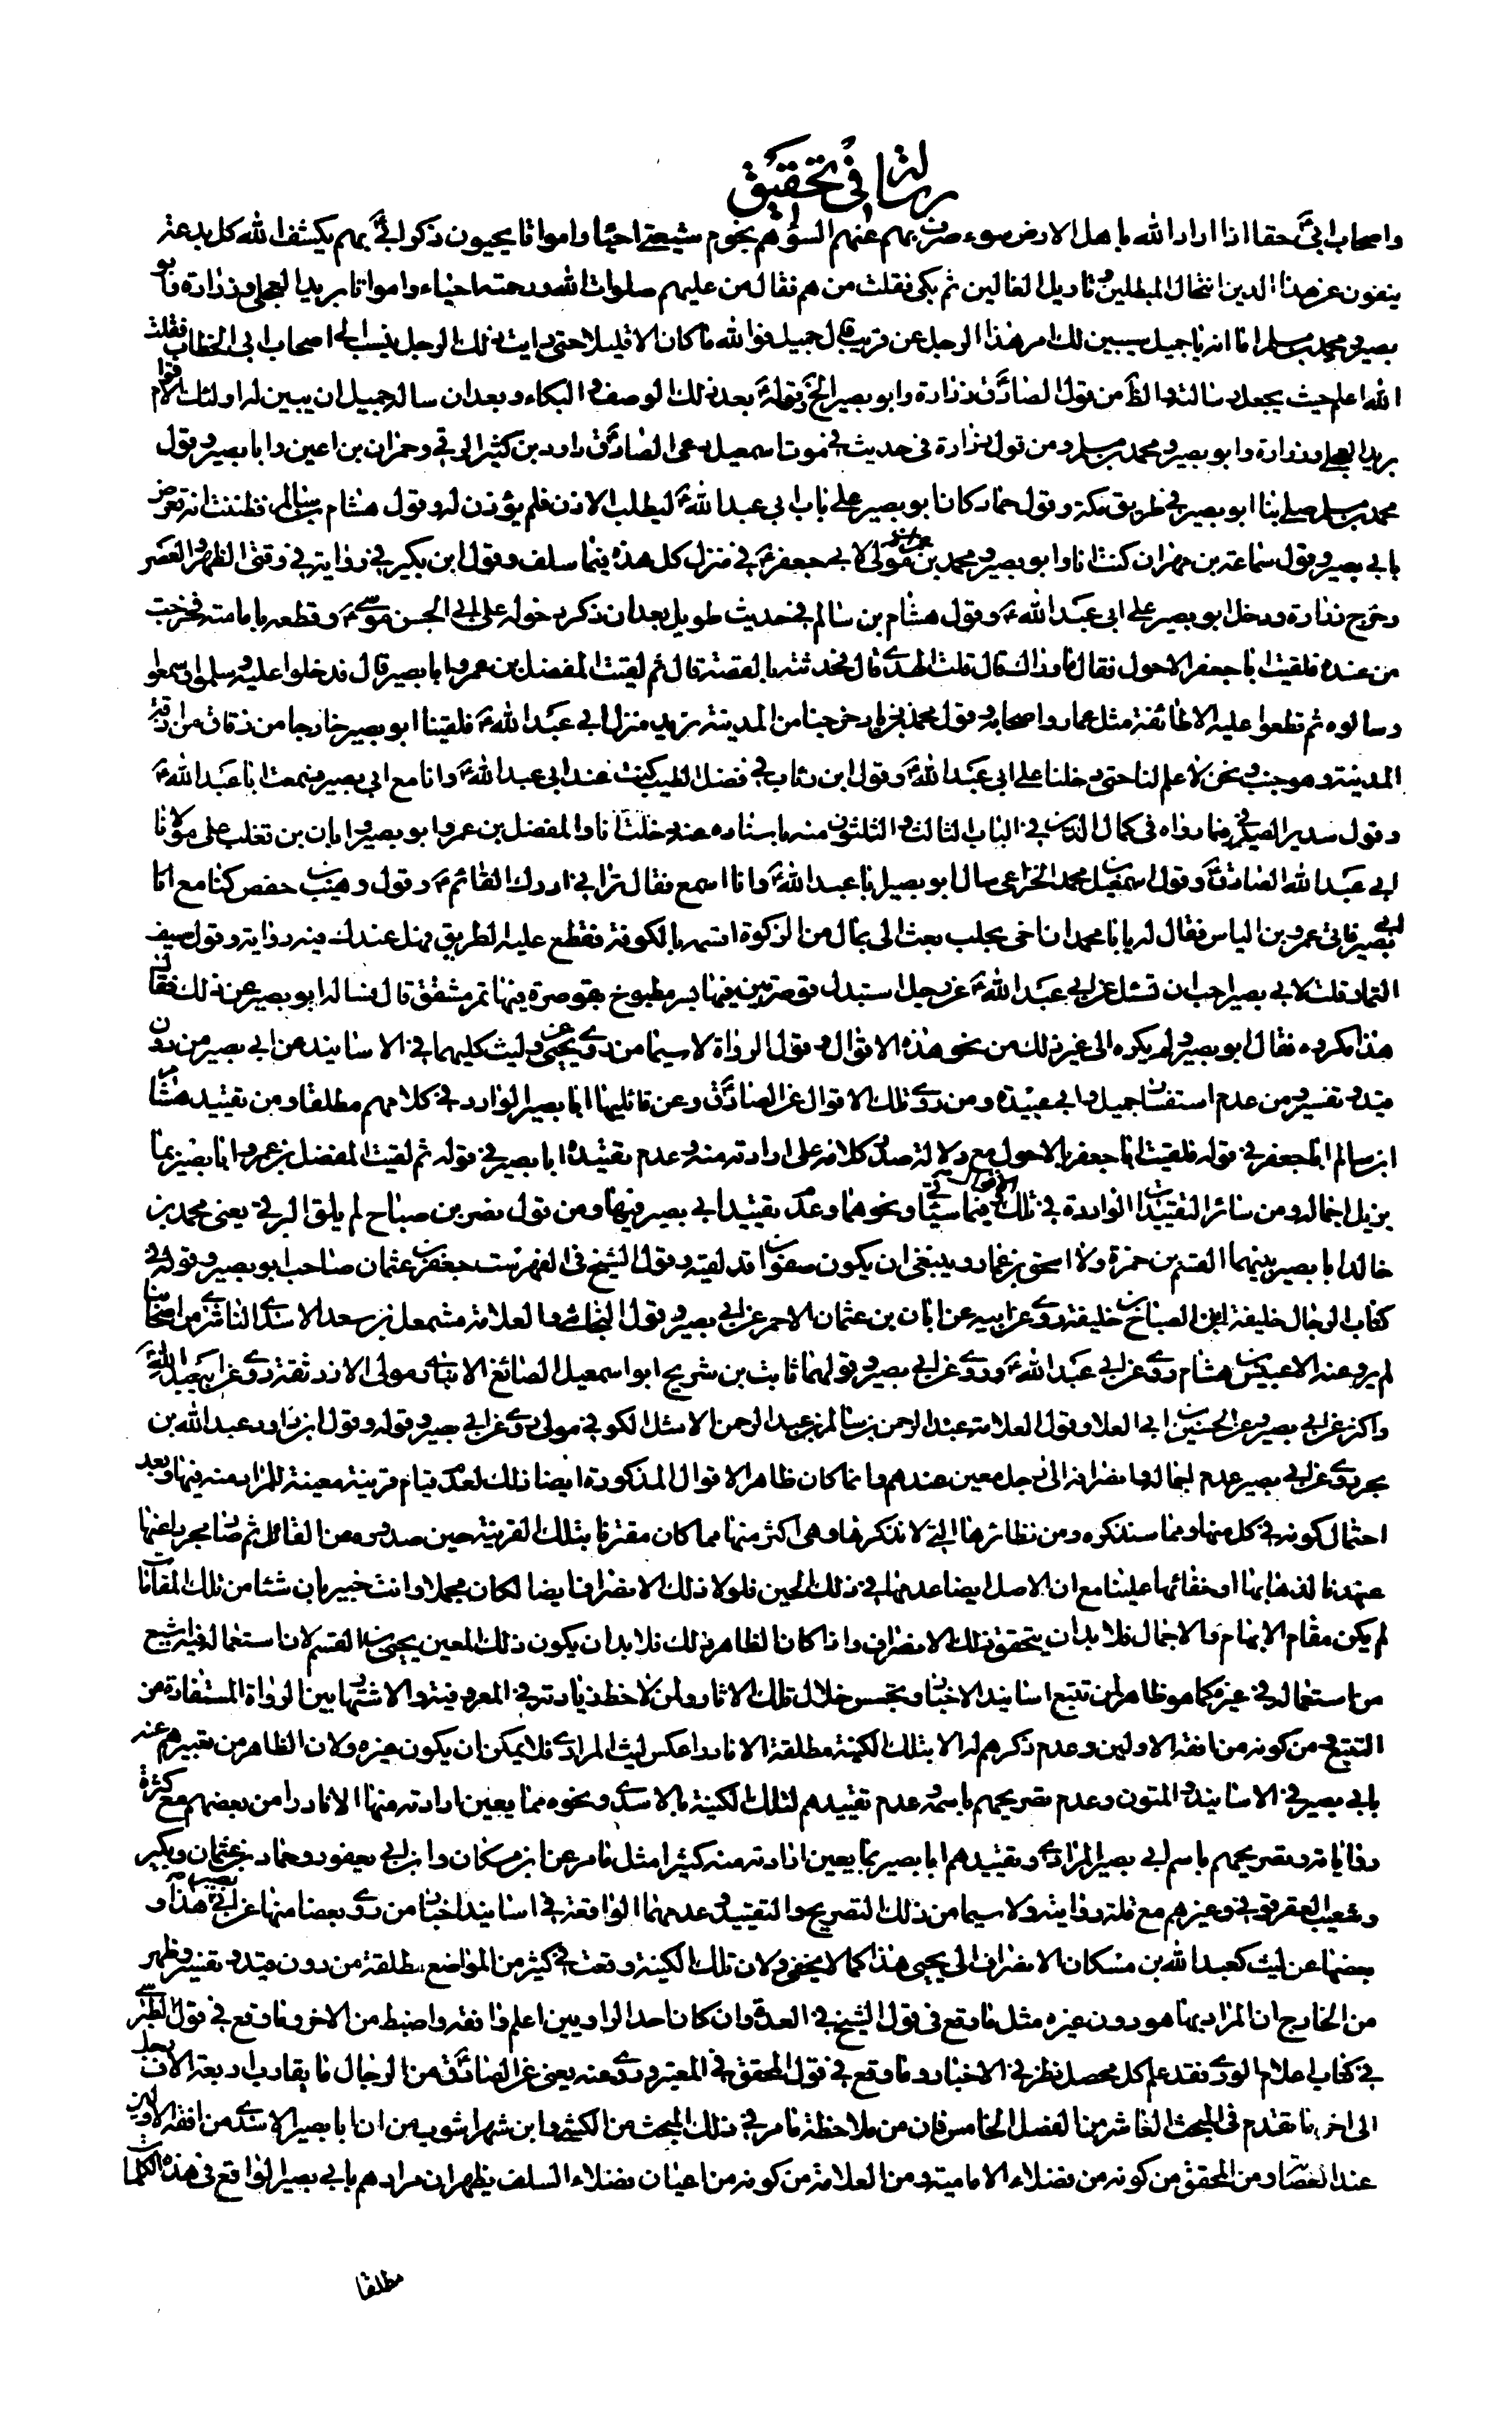 رسالة في تحقيق
واصحاب ابيّ حقا اذا اراد الله باهل الارض سوء صرف بهم عنهم السوء هم نجوم شيعتي احياء وامواتا يحيون ذكر ابيّ بهم يكشف الله كل بدعة
ينفون عن هذا الدين انتحال المبطلين وتاويل الغالين ثم بكى فقلت من هم فقال من عليهم صلوات الله ورحمته احياء وامواتا بريد العجلي وزرارة وابو
بصير ومحمد بن مسلم اما انه يا جميل سيبين لك امر هذا الرجل عن قريب قال جميل فوالله ما كان الا قليلا حتى رايت ذلك الرجل ينسب الى اصحاب ابي الخطاب فقلت
الله اعلم حيث يجعل رسالته والظ من قول الصادقؑ زرارة وابو بصير الخ وقولهؑ بعد ذلك الوصف والبكاء وبعد ان ساله جميل ان يبين له اولئك الاقوام
بريد العجلي وزرارة وابو بصير ومحمد بن مسلم ومن قول زرارة في حديث في موت اسمعيل دعى الصادقؑ داود بن كثير الرقي وحمران بن اعين وابا بصير وقول
محمد بن مسلم صلى بنا ابو بصير في طريق مكة وقول حماد كان ابو بصير على باب ابي عبد اللهؑ ليطلب الاذن فلم يؤذن له وقول هشام بن سالم فظننت انه تعرض
بابي بصير وقول سماعة بن مهران كنت انا وابو بصير ومحمد بن عمران مولى لابي جعفرؑ في منزل كل هذه فيما سلف وقول ابن بكير في روايته في وقتي الظهر والعصر
وخرج زرارة ودخل ابو بصير على ابي عبد اللهؑ وقول هشام بن سالم في حديث طويل بعد ان ذكر دخوله على ابي الحسن موسىؑ وقطعه بامامته فخرجت
من عنده فلقيت ابا جعفر الاحول فقال ما وراك قال قلت الهدى قال فحدثته بالقصة قال ثم لقيت المفضل بن عمر وابا بصير قال فدخلوا عليه وسلموا وسمعوا
وسالوه ثم قطعوا عليه الا طائفة مثل عمار واصحابه وقول محمد خرجنا من المدينة نريد منزل ابي عبد اللهؑ فلقينا ابو بصير خارجا من زقاق من ازقة
المدينة وهو جنب ونحن لا علم لنا حتى دخلنا على ابي عبد اللهؑ وقول ابن رئاب في فضل الطيب كنت عند ابي عبد اللهؑ وانا مع ابي بصير فسمعت ابا عبد اللهؑ
وقول سدير الصيرفي فيما رواه في كمال الدين في الباب الثالث والثلثون منه باسناده عنه دخلت انا والمفضل بن عمر وابو بصير وابان بن تغلب على مولانا
ابي عبد الله الصادقؑ وقول اسمعيل بن محمد الخزاعي سال ابو بصير ابا عبد اللهؑ وانا اسمع فقال تراني ادرك القائمؑ وقول وهيب بن حفص كنا مع ابي
بصير فاتى عمرو بن الياس فقال له يا ابا محمد ان اخي بحلب بعث الي بمال من الزكوة اقسمه بالكوفة فقطع عليه الطريق فهل عندك فيه رواية وقول سيف
التمار قلت لابي بصير احب ان تسئل عن ابي عبد اللهؑ عن رجل استبدل قوصرتين فيهما بسر مطبوخ بقوصرة فيها تمر مشقق قال فساله ابو بصير عن ذلك فقال
هذا مكروه فقال ابو بصير ولم يكره الى غير ذلك من نحو هذه الاقوال وقول الرواة لاسيما من روى عن يحيى وليث كليهما في الاسانيد عن ابي بصير من دون
قيد وتفسير ومن عدم استفسار جميل وابي عبيدة ومن روى تلك الاقوال عن الصادقؑ وعن قائليها ابا بصير الوارد في كلامهم مطلقا ومن تقييد هشام
ابن سالم ابا جعفر في قوله فلقيت ابا جعفر بالاحول مع دلالة صدر كلامه على ارادته منه وعدم تقييده ابا بصير في قوله ثم لقيت المفضل بن عمر وابا بصير بما
يزيل اجماله ومن سائر التقييدات الواردة في تلك الاقوال وفيما سيأتي ونحوهما وعدم تقييد ابي بصير فيها ومن قول نصر بن صباح لم يلق البرقي يعني محمد بن
خالد ابا بصير بينهما القسم بن حمزة ولا اسحق بن عمار وينبغي ان يكون صفوان قد لقيه وقول الشيخ في الفهرست جعفر بن عثمان صاحب ابو بصير وقوله في
كتاب الرجال خليفة ابن الصباح بن خليفة روى عن ابيه عن ابان بن عثمان الاحمر عن ابي بصير وقول النجاشي والعلامة مشمعل بن سعد الاسدي الناشري من اصحابنا
لم يرو عنه الا عبيس بن هشام روى عن ابي عبد اللهؑ وروى عن ابي بصير وقولهما ثابت بن شريح ابو اسمعيل الصائغ الانباري مولى الازد ثقة روى عن ابي عبد اللهؑ
واكثر عن ابي بصير وعن الحسين بن ابي العلا وقول العلامة عبد الرحمن بن سالم بن عبد الرحمن الاشل الكوفي مولى روى عن ابي بصير وقوله وقول ابن داود عبد الله بن
بحر روى عن ابي بصير عدم اجماله وانصرافه الى رجل معين عندهم وانما كان ظاهر الاقوال المذكورة ايضا ذلك لعدم قيام قرينة معينة للمراد منه فيها وبعد
احتمال كونه في كل منها ومما سنذكره ومن نظائرها التي لا نذكرها وهي اكثر منها مما كان مقترنا بتلك القرينة حين صدوره من القائل ثم صار مجردا عنها
عندنا لذهابها او خفائها علينا مع ان الاصل ايضا عدمها في ذلك الحين فلولا ذلك الانصراف ايضا لكان مجملا وانت خبير بان شئا من تلك المقامات
لم يكن مقام الابهام والاجمال فلا بد ان يتحقق ذلك الانصراف واذا كان الظاهر ذلك فلا بد ان يكون ذلك المعين يحيى بن القسم لان استعماله فيه اشيع
من استعماله في غيره كما هو ظاهر لمن تتبع اسانيد الاخبار وتجسس خلال تلك الاثار ولمن لاحظ زيادته في المعروفية والاشتهار بين الرواة المستفادة من
التتبع ومن كونه من افقه الاولين وعدم ذكرهم له الا بتلك الكنية مطلقة الا نادرا عكس ليث المرادي فلا يمكن ان يكون غيره ولان الظاهر من تعبيرهم عنه
بابي بصير في الاسانيد والمتون وعدم تصريحهم باسمه وعدم تقييدهم لتلك الكنية بالاسدي ونحوه مما يعين ارادته منها الا نادرا من بعضهم مع كثرة
رواياته وتصريحهم باسم ابي بصير المرادي وتقييدهم ابا بصير بما يعين ارادته منه كثيرا مثل ما مر عن ابن مسكان وابن ابي يعفور وحماد بن عثمان وبكير
وشعيب العقرقوفي وغيرهم مع قلة روايته ولاسيما من ذلك التصريح والتقييد وعدمهما الواقعة في اسانيد اخبار من روى بعضا منها عن ابي بصير هذا و
بعضها عن ليث كعبد الله بن مسكان الانصراف الى يحيى هذا كما لا يخفى ولان تلك الكنية وقعت في كثير من المواضع مطلقة من دون قيد وتفسير وظهر
من الخارج ان المراد بها هو دون غيره مثل ما وقع في قول الشيخ في العدة وان كان احد الراويين اعلم وافقه واضبط من الاخر وما وقع في قول الطبرسي
في كتاب اعلام الورى فقد علم كل محصل نظر في الاخبار وما وقع في قول المحقق في المعتبر وروى عنه يعني عن الصادقؑ من الرجال ما يقارب اربعة الاف رجل
الى اخر ما تقدم في المبحث العاشر من الفصل الخامس فان من ملاحظة ما مر في ذلك المبحث من الكشي وابن شهراشوب من ان ابا بصير الاسدي من افقه الاولين
عند العصابة ومن المحقق من كونه من فضلاء الامامية ومن العلامة من كونه من اعيان فضلاء السلف يظهر ان مرادهم بابي بصير الواقع في هذه الكلمات
مطلقا